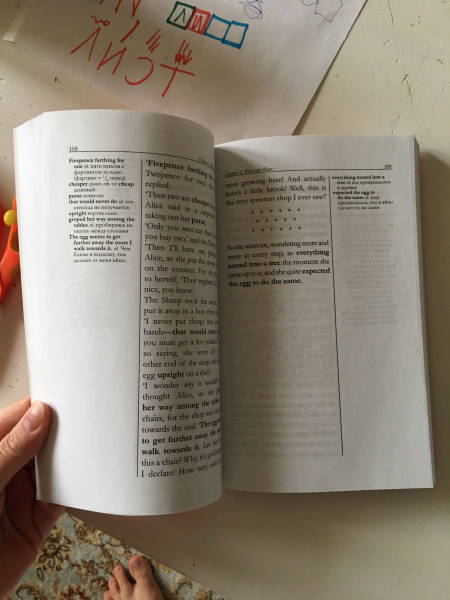 TCNV
108
Fivepence farthing for
one зл. пять пенсов с
фартингом за одно
cheaper сравн. от cheap
дешевый
purse кошелек
that would never do зл. это
никогда не получается
upright вертикально
groped her way among the
tables зл. пробираясь на
ощупь между столами
The egg seems to get
further away the more I
walk towards it. зл. Чем
ближе я подхожу, тем
дальше от меня яйцо.
'Fivepence farthing for
Twopence for two
replied.
'Then two are cheaper
Alice said in a surprised
taking out her purse.
'Only you must eat them
you buy two,' said the
'Then I'll have one, please
Alice, as she put the money
on the counter. For she
to herself, 'They mightn't be
nice, you know.'
The Sheep took the money
put it away in a box: then
'I never put things into
hands—that would never
you must get it for yourself
so saying, she went off
other end of the shop, and
egg upright on a shelf.
'I wonder why it would
thought Alice, as she groped
her way among the tables
chairs, for the shop was
towards the end. 'The egg
to get further away the more
walk towards it. Let me
this a chair? Why, it's got
I declare! How very odd to
Chapter V. Wool and Water
109
trees growing here! And actually
here's a little brook! Well, this is
the very queerest shop I ever saw!'
* * * * * *
* * * * *
* * * * * *
So she went on, wondering more
and more at every step, as everything
turned into a tree the moment she
came up to it, and she quite expected
the egg to do the same.
everything turned into a
tree зл. все превращалось
в деревья
expected the egg to
do the same зл.
предполагала, что и яйцо
сделает то же самое